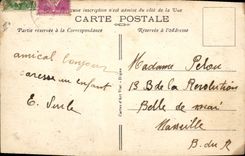 Toute inscription n'est admise du côté de la Vue
CARTE POSTALE
Partie réservée à la Correspondance
Réservée à l'Adresse
amical bonjour
caresse au enfant
E. Soule
Madame Pelou
13 B de la Révolution
Belle de mai
Marseille
B. du R